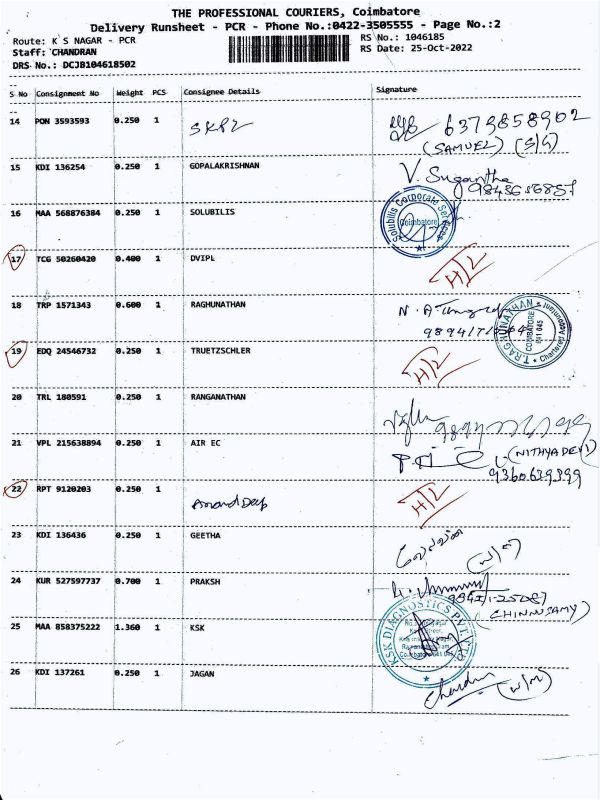 THE PROFESSIONAL COURIERS, Coimbatore
Delivery Runsheet - PCR - Phone No.:0422-3505555 - Page No.:2
Route: K S NAGAR - PCR RS No.: 1046185
Staff: CHANDRAN RS Date: 25-Oct-2022
DRS No.: DCJB104618502
S No Consignment No Weight PCS Consignee Details Signature
14 PON 3593593 0.250 1 6379858902
(SAMUEL) (S/G)
15 KDI 136254 0.250 1 GOPALAKRISHNAN V. Sugantha
16 MAA 568876384 0.250 1 SOLUBILIS Solubilis Corporate Coimbatore
17 TCG 50260420 0.400 1 DVIPL H/2
18 TRP 1571343 0.600 1 RAGHUNATHAN T.RAGHUNATHAN COIMBATORE 641 045 Chartered
19 EDQ 24546732 0.250 1 TRUETZSCHLER H/2
20 TRL 180591 0.250 1 RANGANATHAN
21 VPL 215638894 0.250 1 AIR EC (NITHYA DEVI)
9360639399
22 RPT 9120203 0.250 1 Anand Deep H/2
23 KDI 136436 0.250 1 GEETHA
24 KUR 527597737 0.700 1 PRAKSH
(CHINNUSAMY)
25 MAA 858375222 1.360 1 KSK KSK DIAGNOSTICS PVT LTD
26 KDI 137261 0.250 1 JAGAN